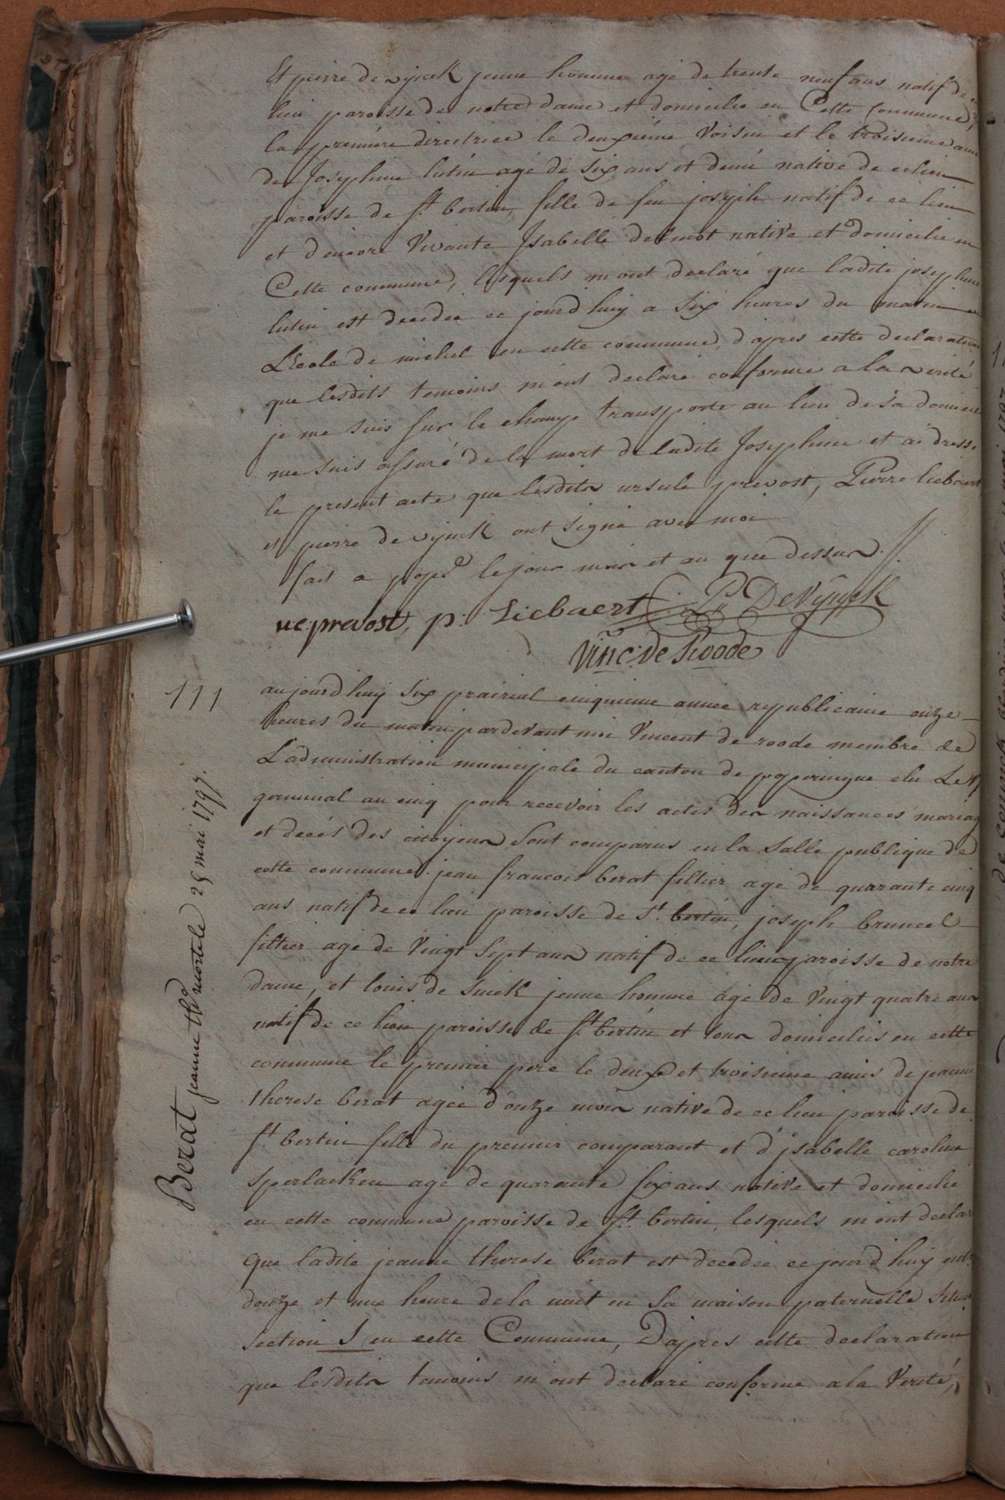 Et pierre de vijnck jeune homme agé de trente neuf ans natif de ce
lieu paroisse de notre dame et domicilie en Cette Commune,
la premiére directrice le deuxiéme Voisin et le troisieme ami
de Josephine lutin agé de six ans et demi native de ce lieu
paroisse de st bertin, fille de feu joseph natif de ce lieu
et d'encore Vivante Isabelle native et domicilie en
Cette commune, lesquels m'ont declaré que ladite josephine
lutin est decedee ce jourd'huy a six heures du matin
L'Ecole de michel en cette commune, d'apres cette declaration
que lesdits temoins m'ont declaré conforme a la verité
je me suis sur le champ transporté au lieu de sa domicile
me suis assuré de la mort de ladite Josephine et ai dressé
le present acte que lesdits ursule prevost, Pierre liebaert
et pierre de vijnck ont signé avec moi
fait a pops le jour mois et an que dessus
ve prevost, p: Liebaert P: DeVÿnck
Vinc: de Roode
111
aujourd'huy six prairial cinquieme année republicaine onze
heures du matin pardevant moi Vincent de roode membre de
L'administration municipale du canton de poperingue elu Le
germinal an cinq pour recevoir les actes des naissances mariages
et decés des citoyens sont comparus en la salle publique de
cette commune jean francois berat filtier agé de quarante cinq
ans natif de ce lieu paroisse de St bertin, joseph bruneel
filtier agé de Vingt sept ans natif de ce lieu paroisse de notre
dame, et louis de jeune homme agé de Vingt quatre ans
natif de ce lieu paroisse de st bertin et tous domiciliés en cette
commune le premier pere le deux et troisieme amis de jeanne
therese berat agée d'onze mois native de ce lieu paroisse de
st bertin fille du premier comparant et d'jsabelle caroline
agé de quarante six ans native et domicilie
en cette commune paroisse de st bertin, lesquels m'ont declaré
que ladite jeanne therese berat est decedée ce jourd'huy entre
douze et une heure de la nuit en sa maison paternelle
section S en cette Commune, D'apres cette declaration
que lesdits temoins m'ont declaré conforme a la Verité,
Berat jeanne the mortele 25 mai 1797.